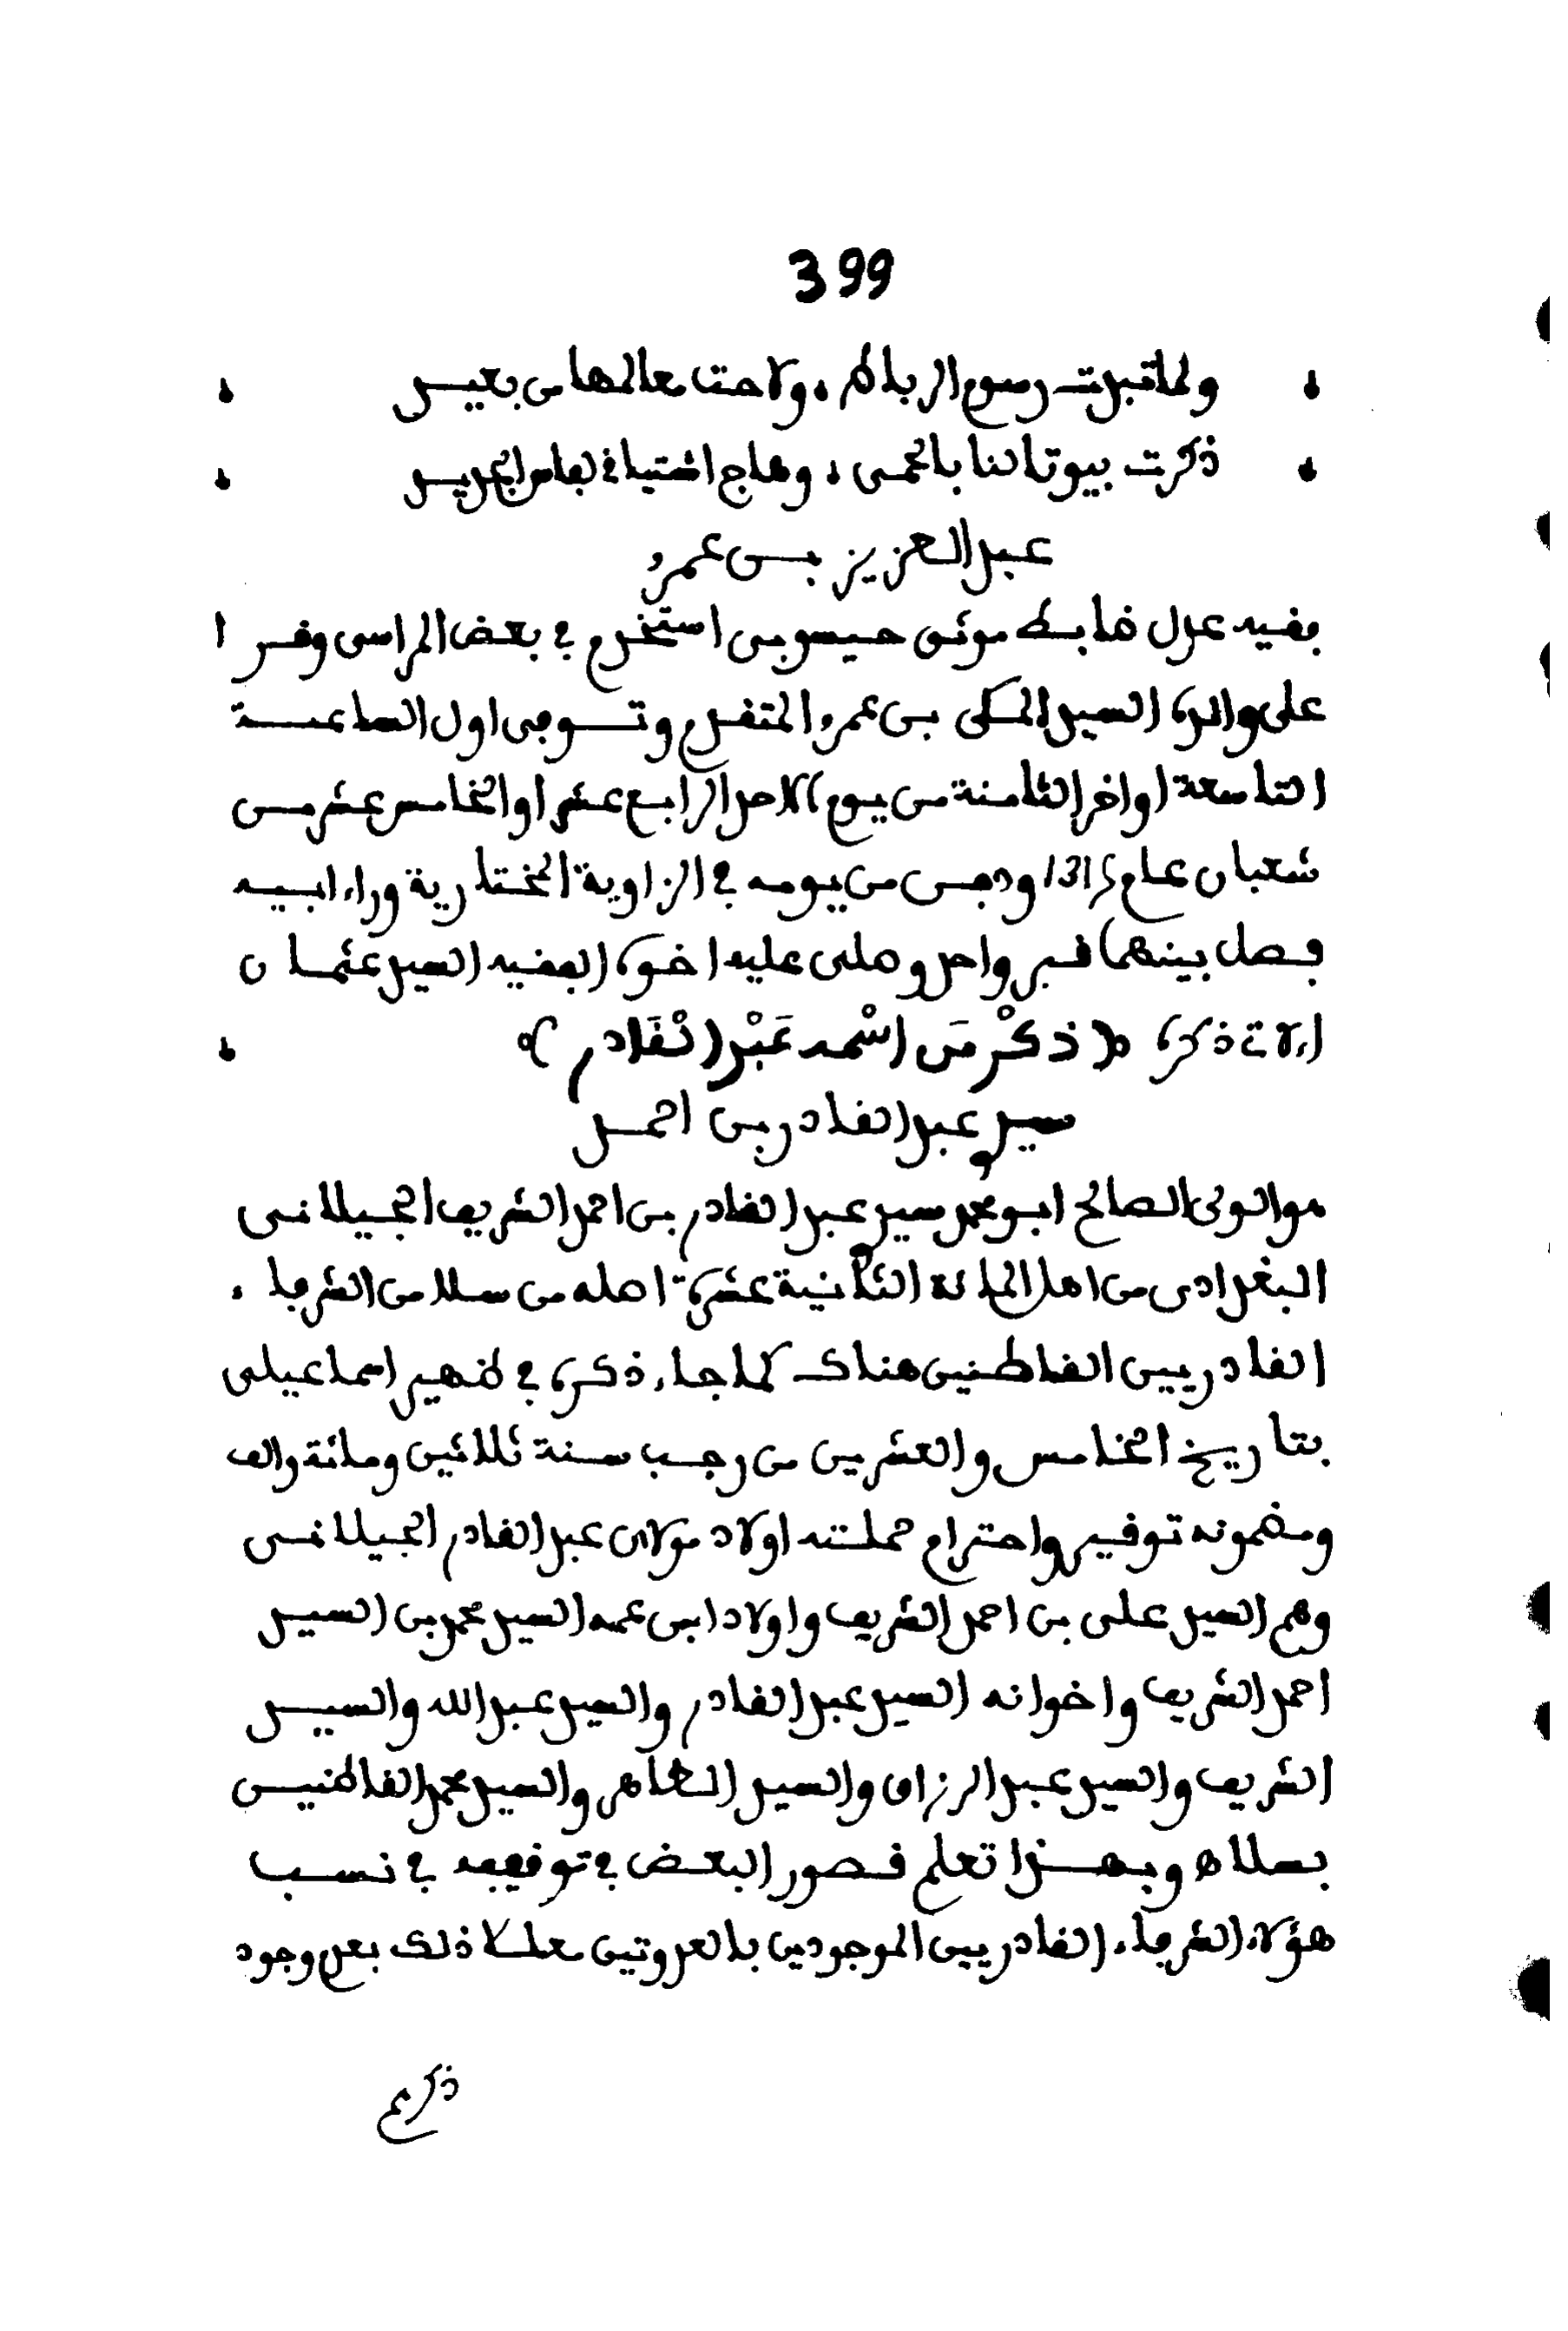 399
ولما تبدت رسوم الرباط ، ولاحت معالمها من بعيد
ذكرت بيوتا لنا بالحمى ، وهاج اشتياقي لفاس الجديد
عبد العزيز بن عمرو
فقيه عدل ضابط موثق حيسوبي استخدم في بعض المراسى وقرا
على والده السيد المكى بن عمرو المتقدم وتوفى اول الساعة
التاسعة او اخر الثامنة من يوم الاحد الرابع عشر او الخامس عشر من
شعبان عام 131 ودفن من يومه في الزاوية المختارية وراء ابيه
فصل بينهما قبر واحد وصلى عليه اخوه الفقيه السيد عثمان
الاتى ذكره (ذكْر مَن اسْمه عَبْد الْقَادر)
سيد عبد القادر بن احمد
هو الولى الصالح ابو محمد سيد عبد القادر بن احمد الشريف الجيلانى
البغدادى من اهل المائة الثانية عشرة اصله من سلا من الشرفاء
القادريين القاطنين هناك كما جاء ذكره في ظهير اسماعيلى
بتاريخ الخامس والعشرين من رجب سنة ثلاثين ومائة والف
ومضمونه توقير واحترام حملته اولاد مولاى عبد القادر الجيلانى
وهم السيد على بن احمد الشريف واولاد ابن عمه السيد محمد بن السيد
احمد الشريف واخوانه السيد عبد القادر والسيد عبد الله والسيد
الشريف والسيد عبد الرزاق والسيد الطاهر والسيد محمد القاطنين
بسلا اه وبهذا تعلم قصور البعض في توقفه في نسب
هؤلاء الشرفاء القادريين الموجودين بالعدوتين معللا ذلك بعدم وجود
ذكرهم